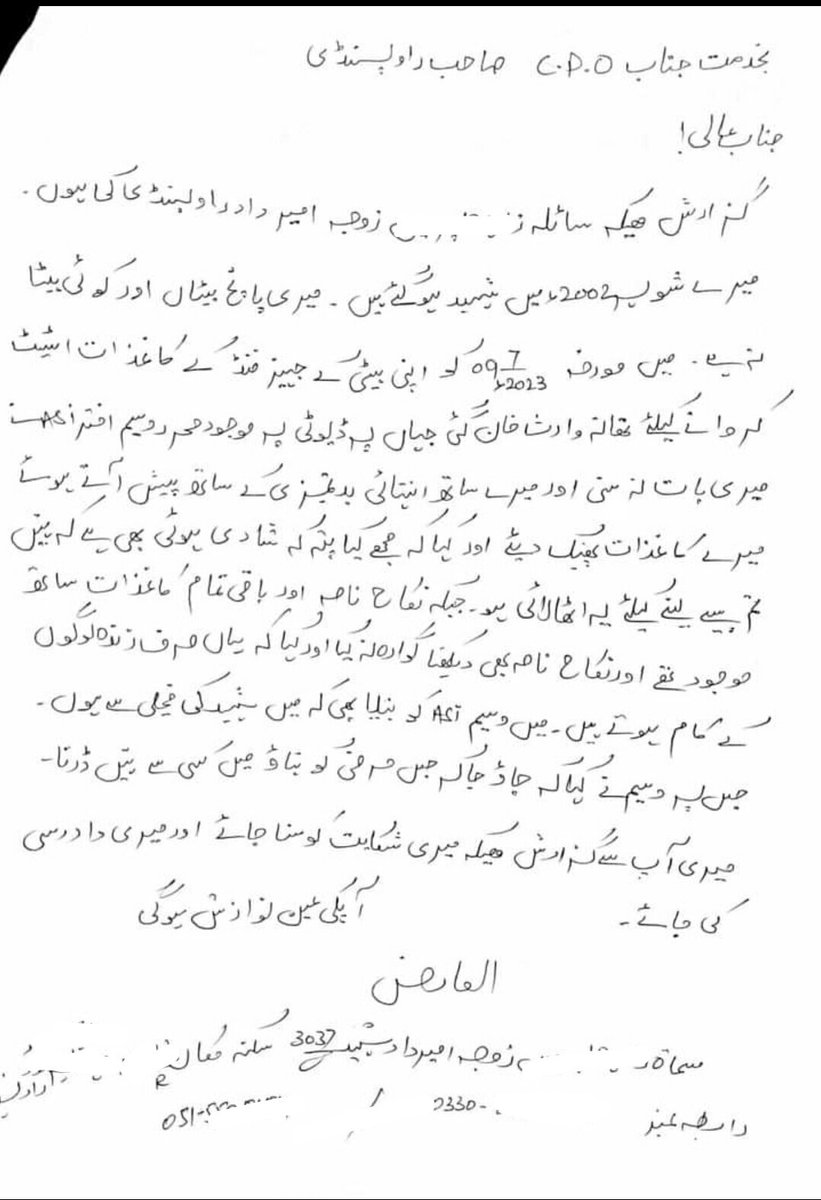 بخدمت جناب C.P.O صاحب راولپنڈی
جناب عالی!
گزارش ھیکہ سائلہ زوجہ امیر داد راولپنڈی کی ہوں۔
میرے شوہر 2002ء میں شہید ہوگئے ہیں۔ میری پانچ بیٹاں اور کوئی بیٹا
نہ ہے۔ میں مورخہ 09-7-2023ء کو اپنی بیٹی کے جہیز فنڈ کے کاغذات اٹیسٹ
کروانے کیلئے تھانہ وارث خان گئی جہاں پہ ڈیوٹی پہ موجود محرر وسیم اختر ASI نے
میری بات نہ سنی اور میرے ساتھ انتہائی بدتمیزی کے ساتھ پیش آتے ہوئے
میرے کاغذات پھینک دیئے اور کہا کہ مجھے کیا پتہ کہ شادی ہوئی بھی ہے کہ نہیں
تم پیسے لینے کیلئے یہ اٹھا لائی ہو۔ جبکہ نکاح نامہ اور باقی تمام کاغذات ساتھ
موجود تھے اور نکاح نامہ بھی دیکھنا گوارہ نہ کیا اور کہا کہ یہاں صرف زندہ لوگوں
کے کام ہوتے ہیں۔ میں وسیم ASI کو بتایا بھی کہ میں شہید کی فیملی سے ہوں۔
جس پہ وسیم نے کہا کہ جاؤ جا کہ جس مرضی کو بتاؤ میں کسی سے نہیں ڈرتا۔
میری آپ سے گزارش ھیکہ میری شکایت کو سنا جائے اور میری دادرسی
کی جائے۔ آپکی عین نوازش ہوگی
العارض
مسماۃ زوجہ امیر داد شہید 3037 سکنہ مکان
رابطہ نمبر 0330- / 051-